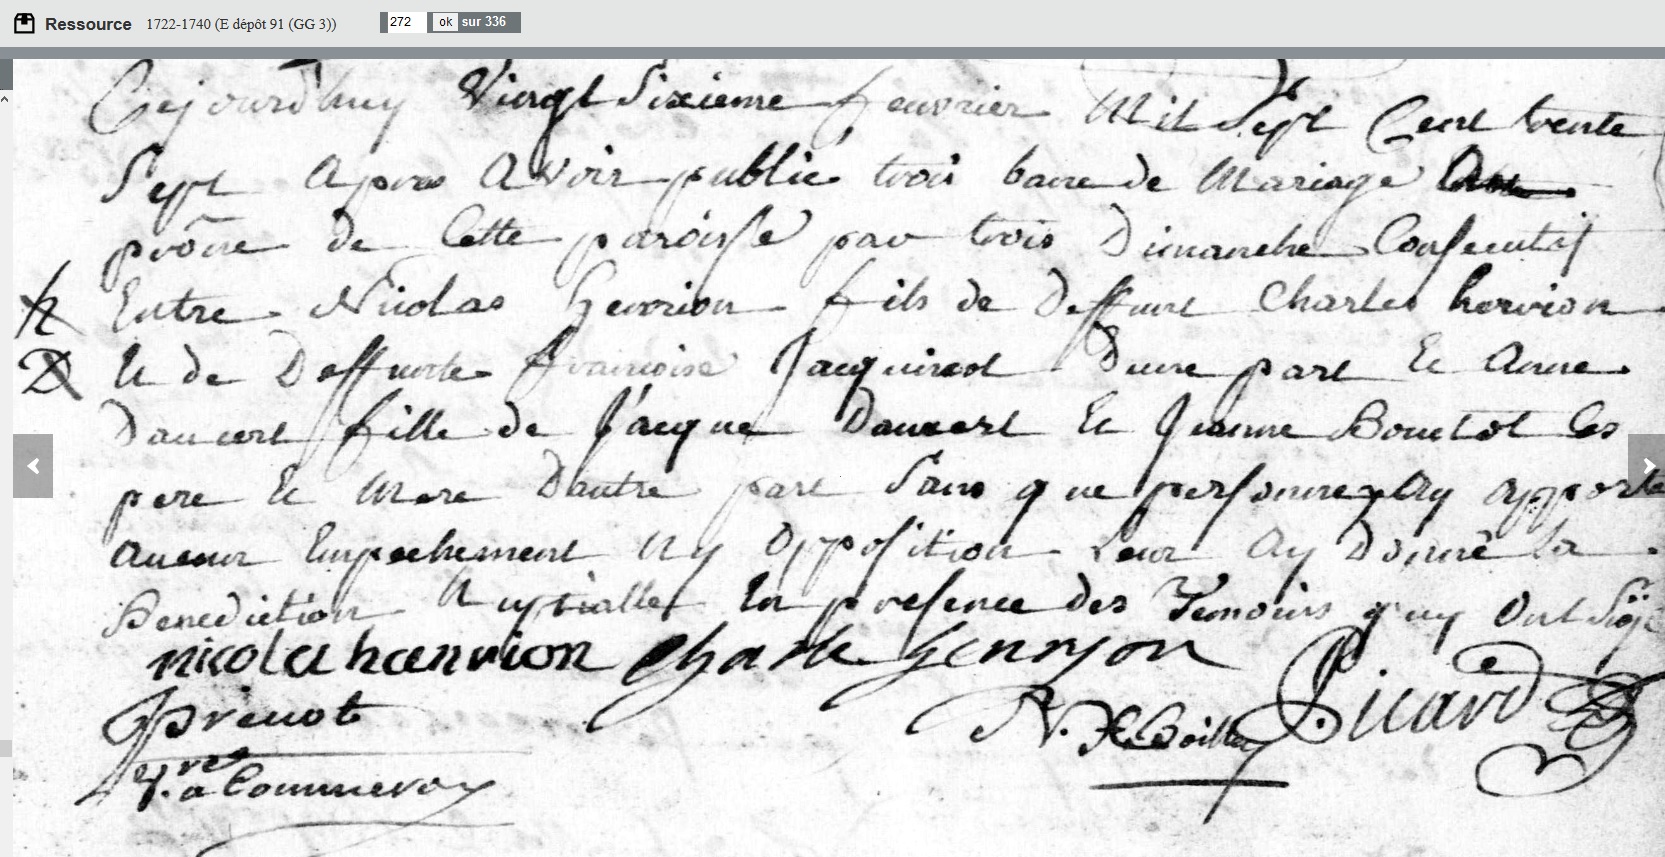 Ressource 1722-1740 (E dépôt 91 (GG 3)) 272 ok sur 336
Cejourdhuy Vingt Sixieme feuvrier Mil Sept Cent trente
Sept Apres Avoir publie trois banc de Mariage
prône de Cette paroisse par trois Dimanche Consecutif
Entre Nicolas Henrion fils de Deffunt Charles henrion
Et de Deffunte francoise Jacquinot Dune part Et Anne
Daucert fille de Jacque Daucert Et Jeanne Bouctot les
pere Et Mere Dautre part Sans que personne Ay apporte
Aucun Empechement Ny Opposition Leur Ay Donné la
Benediction Nuptialle En presence des Temoins quy Ont Sig
nicola haenrion Charle henryon
prenot N. Picard